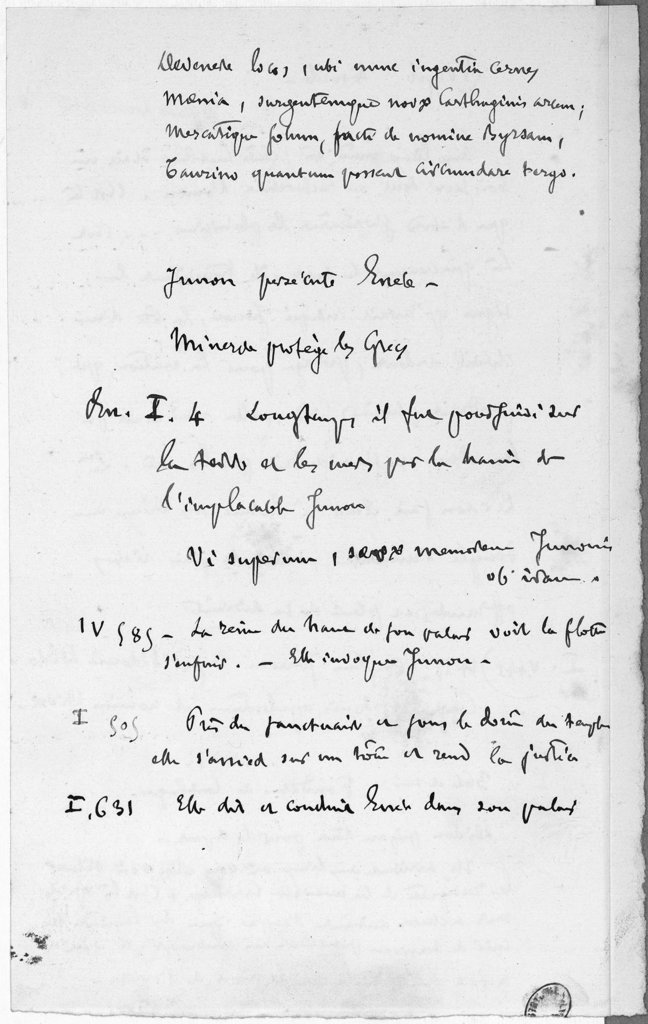 Devenere locos, ubi nunc ingentia cernes
Mœnia, surgentemque novæ Carthaginis arcem;
Mercatique solum, facti de nomine Byrsam,
Taurino quantum possent circumdare tergo.
Junon persécute Enée –
Minerve protège les Grecs
En. I. 4 Longtemps il fut poursuivi sur
la terre et les mers par la haine de
l'implacable Junon
Vi superum, sævæ memorem Junonis
ob iram.
IV 585 – La reine du haut de son palais voit la flotte
s'enfuir. – Elle invoque Junon –
I 505 Près du sanctuaire et sous le dôme du temple
elle s'assied sur un trône et rend la justice
I, 631 Elle dit et conduit Enée dans son palais